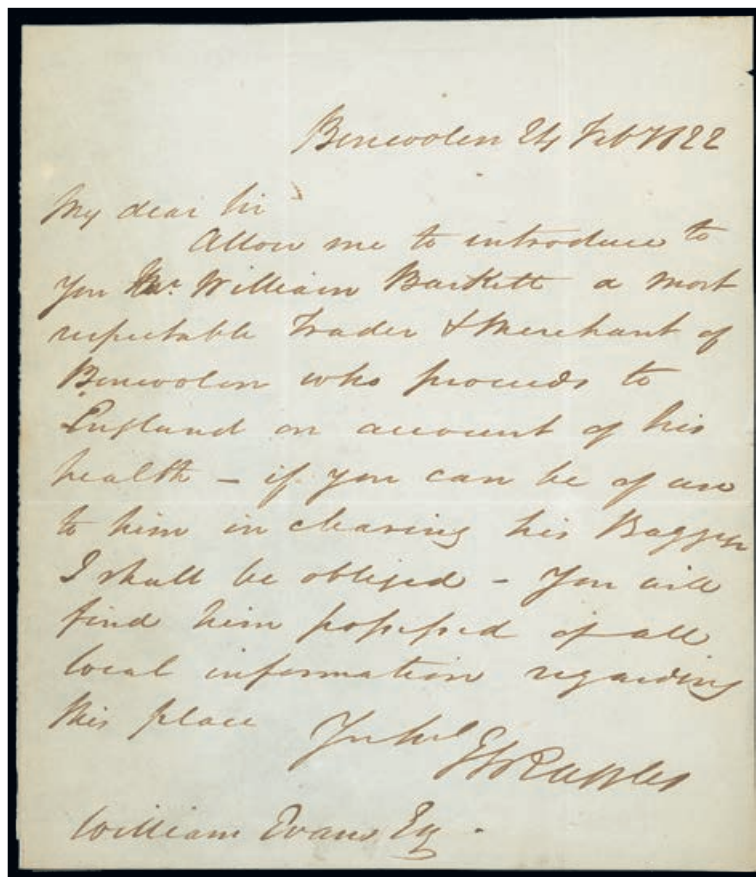 Bencoolen 24 Feby 1822
My dear Sir
Allow me to introduce to
you Mr. William Barkett a most
respectable Trader & Merchant of
Bencoolen who proceeds to
England on account of his
health – if you can be of use
to him in clearing his Baggage
I shall be obliged – You will
find him possessed of all
local information regarding
this place
TSRaffles
William Evans Esq.